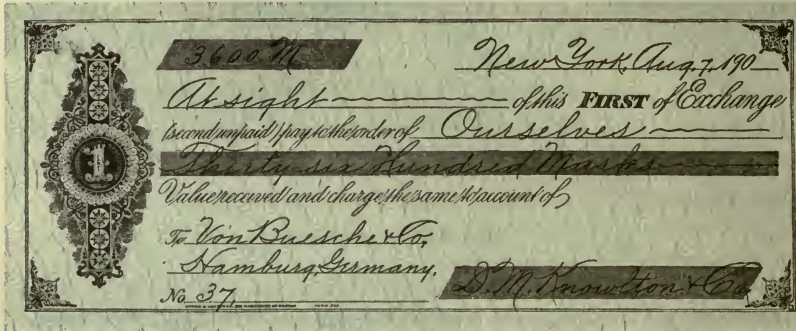 3600 M New York, Aug. 7, 190
At sight of this FIRST of Exchange
(second unpaid) pay to the order of Ourselves
Thirty six Hundred Marks
Value received and charge the same to account of
To Von Buesche & Co,
Hamburg, Germany.
No 37. D. M. Knowlton & Co